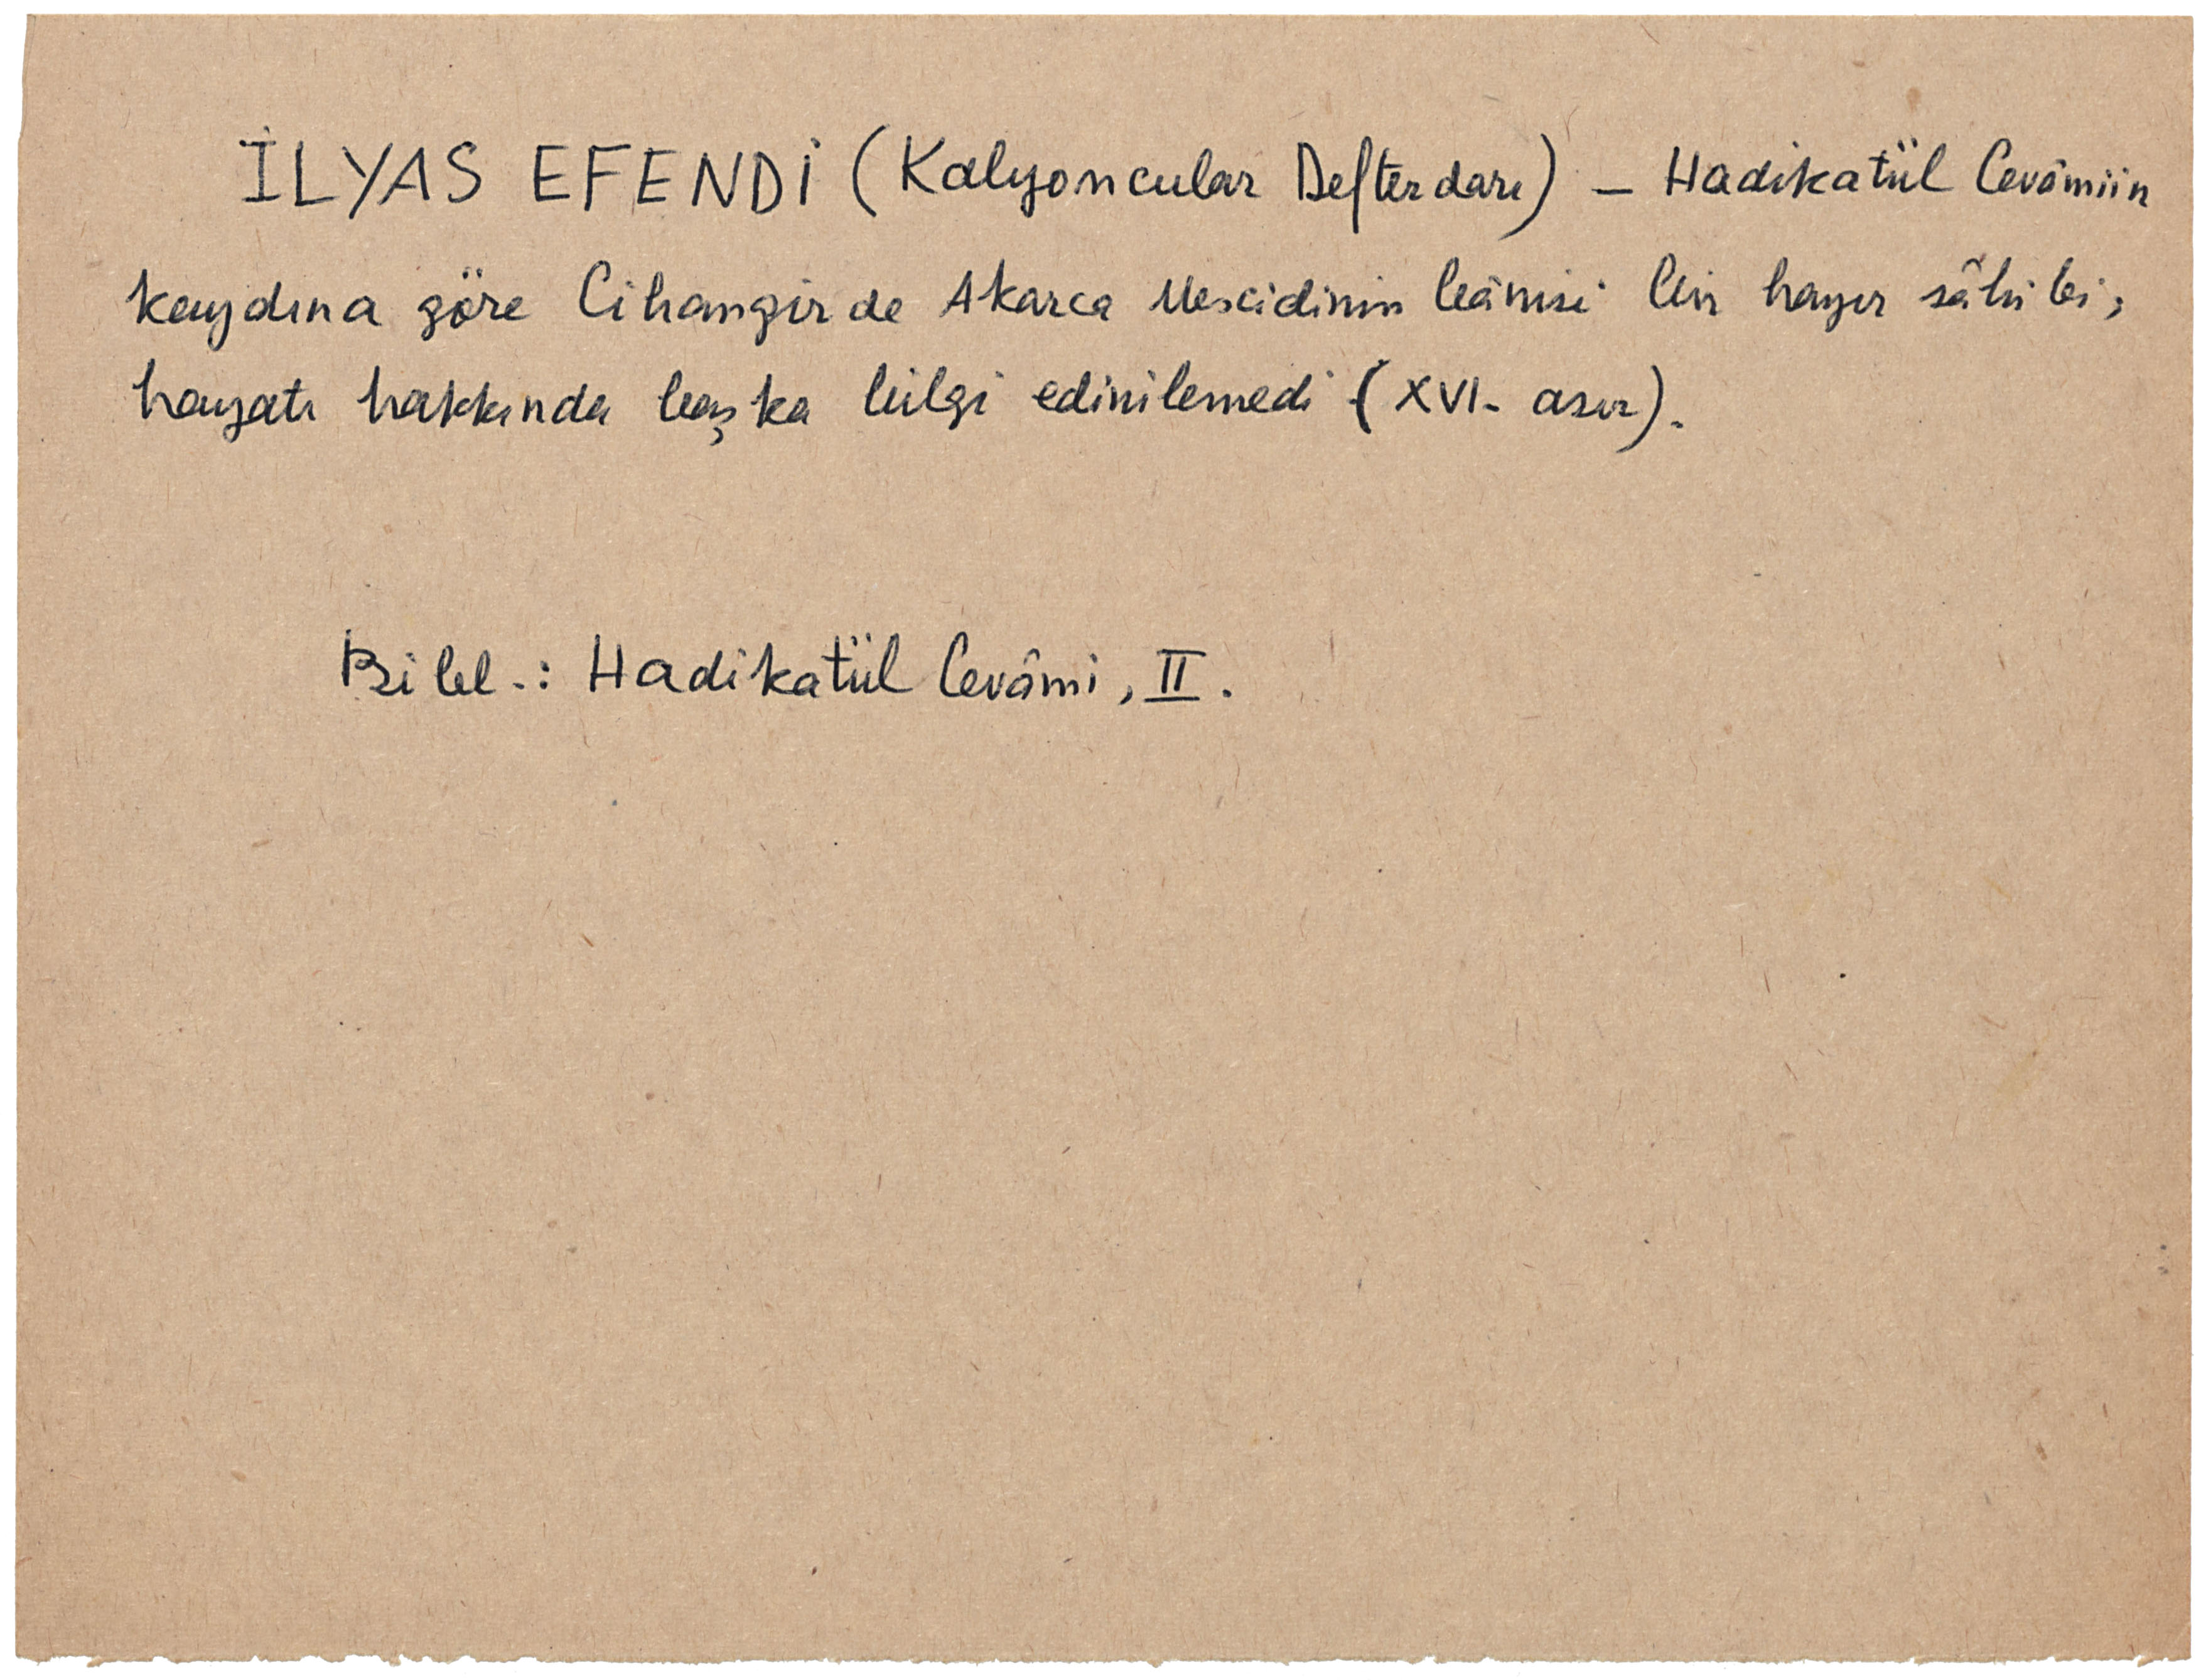 İLYAS EFENDİ (Kalyoncular Defterdarı) - Hadikatül Cevâmiin
kaydına göre Cihangirde Akarca Mescidinin bânisi bir hayır sâhibi;
hayatı hakkında başka bilgi edinilemedi (XVI. asır).
Bibl.: Hadikatül Cevâmi, II.